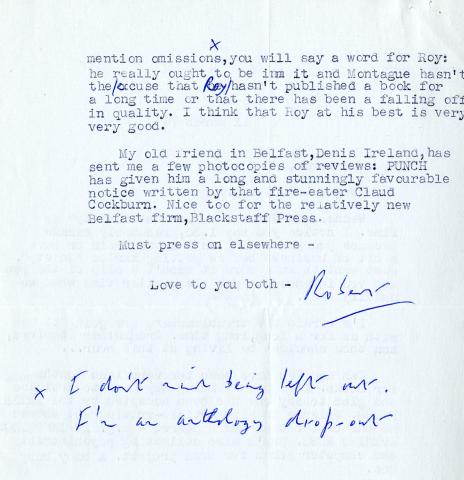 x
mention omissions,you will say a word for Roy:
he really ought to be inm it and Montague hasn't
the excuse that Roy hasn't published a book for
a long time or that there has been a falling off
in quality. I think that Roy at his best is very
very good.
My old friend in Belfast,Denis Ireland,has
sent me a few photocopies of reviews: PUNCH
has given him a long and stunningly favourable
notice written by that fire-eater Claud
Cockburn. Nice too for the relatively new
Belfast firm,Blackstaff Press.
Must press on elsewhere -
Love to you both - Robert
x I don't mind being left out.
I'm an anthology drop-out